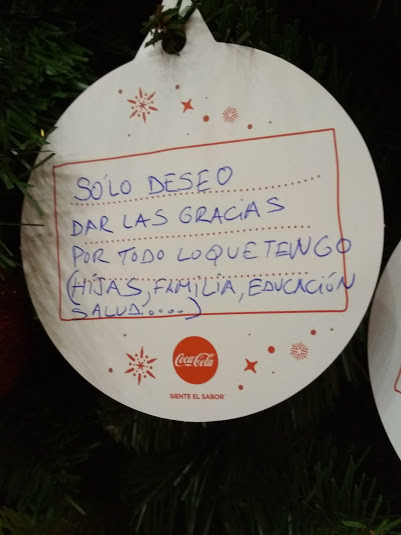 SÓLO DESEO
DAR LAS GRACIAS
POR TODO LO QUE TENGO
(HIJAS, FAMILIA, EDUCACIÓN
SALUD....)
Coca-Cola
SIENTE EL SABOR